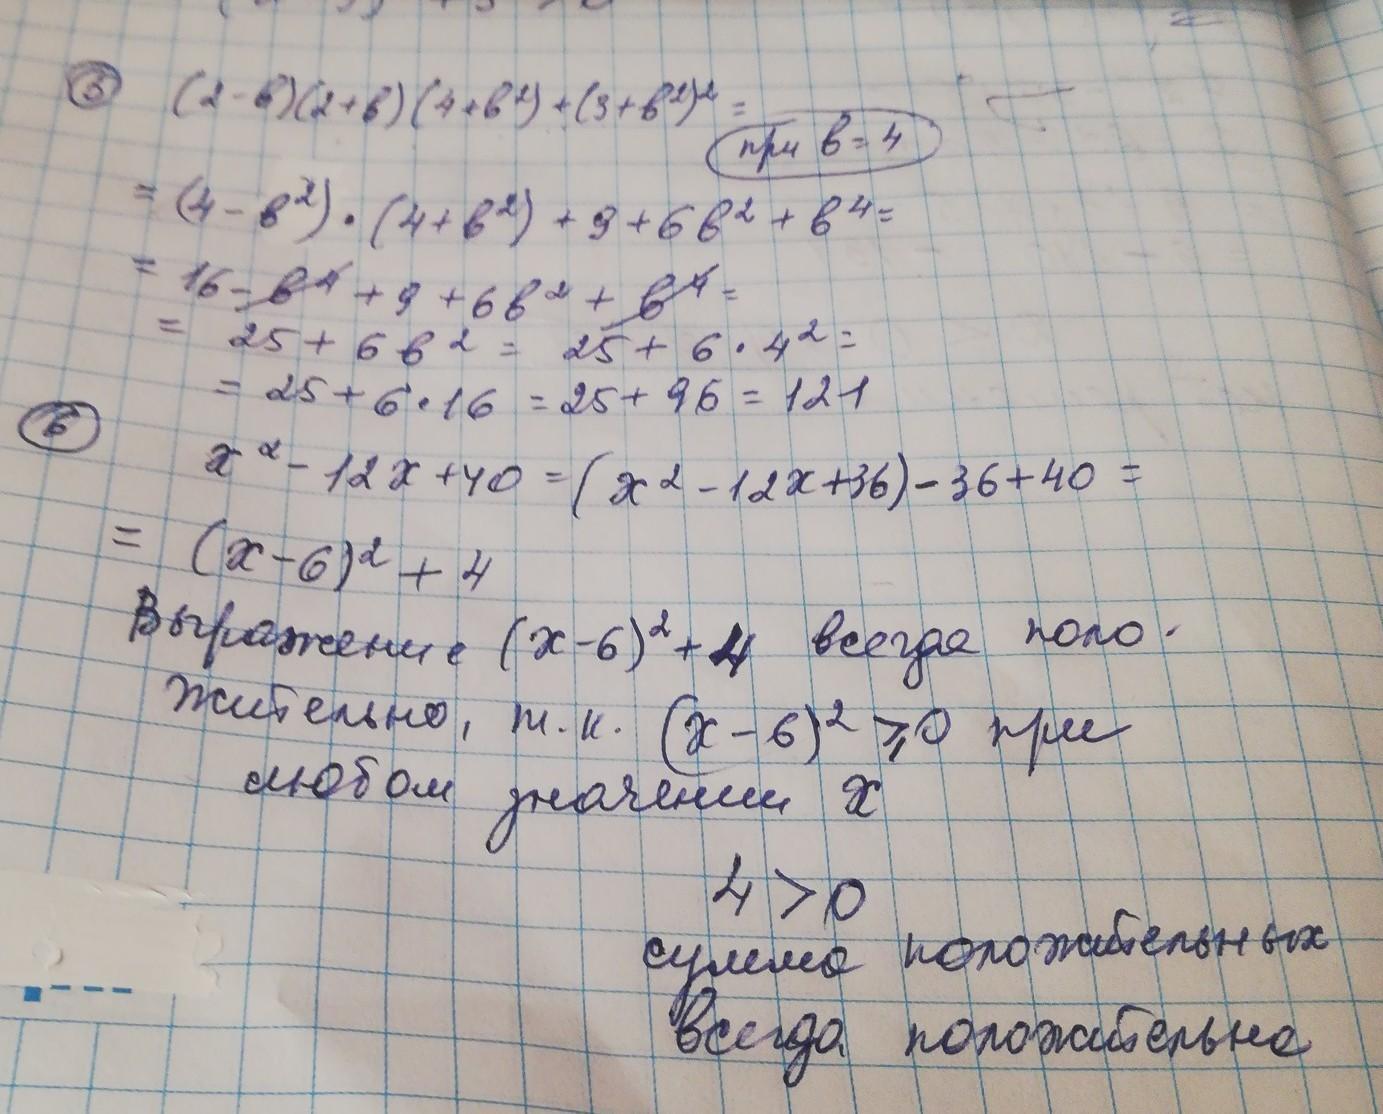 5 (2-в)(2+в)(4+в²)+(3+в²)² =
при в=4
= (4-в²)·(4+в²)+9+6в²+в⁴=
= 16-в⁴+9+6в²+в⁴=
= 25+6в² = 25+6·4²=
= 25+6·16 = 25+96 = 121
6
x²-12x+40 = (x²-12x+36)-36+40 =
= (x-6)²+4
Выражение (x-6)²+4 всегда поло-
жительно, т.к. (x-6)² ⩾0 при
любом значении x
4>0
сумма положительных
всегда положительна